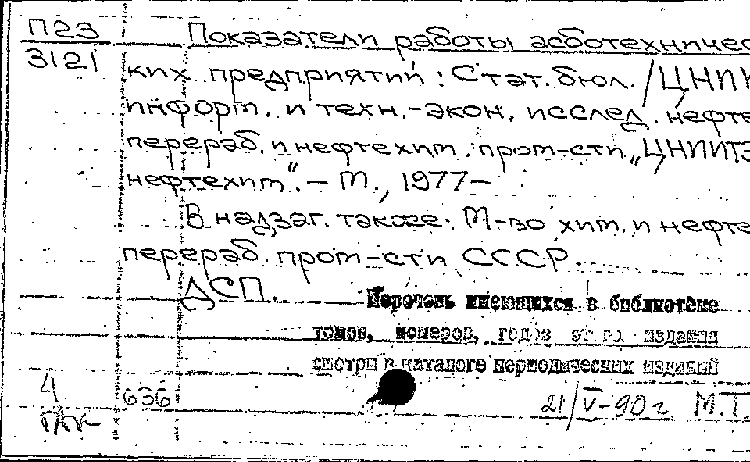 П23
3121
Показатели работы асботехничес
ких предприятий: Стат. бюл. / ЦНИИ
информ. и техн.-экон. исслед. нефте
перераб. и нефтехим. пром-сти „ЦНИИТЭ
нефтехим“. – М., 1977–
В надзаг. также: М-во хим. и нефте
перераб. пром-сти СССР.
ДСП.
Перечень имеющихся в библиотеке
томов, номеров, годов издания
смотри в каталоге периодических изданий
4
636
21/V-90 г. М.Т.